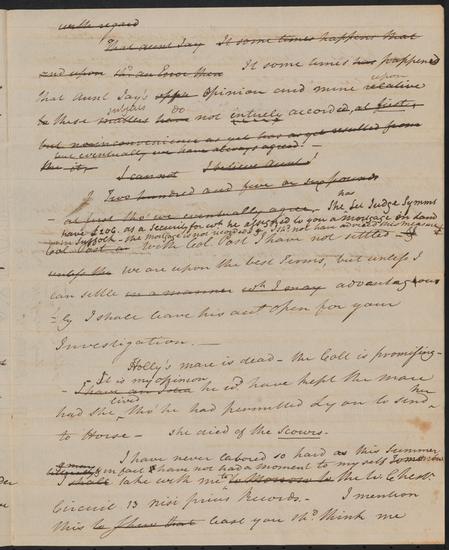 with regard
That aunt Jay It some times happens that
and upon this an Error then It some times has happened
upon
that Aunt Jay's opinion and mine relative
subjects do
to these matters have not entirely accorded, at first,
but no inconvenience as yet has as yet resulted from
but eventually we have always agreed.
I cannot I believe Aunt
Two hundred and five or six pounds
has
at first tho' we eventually agree, She let Judge Symms
have £206. as a Security for wch he assigned to you a Mortgage on Land
in Suffolk - the mortgage is not recorded & I shd. not have advised this measure
Col. Post as With Col. Post I have not settled - &
unless the we are upon the best Terms, but unless I
can settle in a manner wch I may advantageous
- ly I shall leave his acct open for your
Investigation. -
Holly's mare is dead - the Colt is promising -
It is my opinion
I have an Idea he wd have kept the mare
lived her
had she, tho' he had permitted Lyon to send
to Horse - she died of the Scours.
I have never labored so hard as this Summer
in fact I have not had a moment to myself
I shall take with me to Morrow to the W. Chestr.
Circuit 13 nisi prius Records. - I mention
this to Shew that least you shd. think me